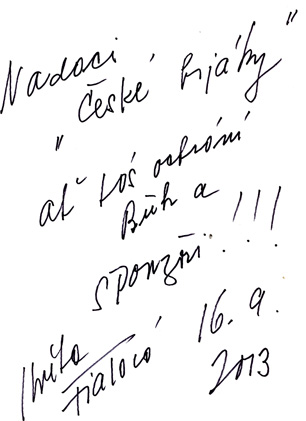 Nadaci
"České bijáky"
ať Vás ochrání
Bůh a
sponzoři!!!
Květa
Fialová 16. 9.
2013